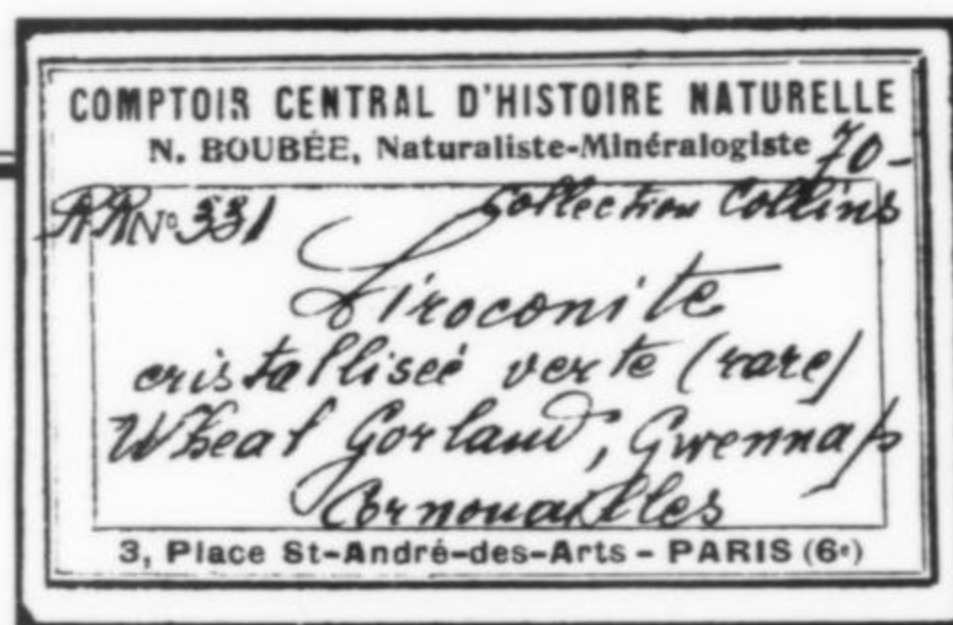 COMPTOIR CENTRAL D'HISTOIRE NATURELLE
N. BOUBÉE, Naturaliste-Minéralogiste 70-
RR No 331 Collection Collins
Liroconite
cristallisée verte (rare)
Wheal Gorland, Gwennap
Cornouailles
3, Place St-André-des-Arts - PARIS (6e)